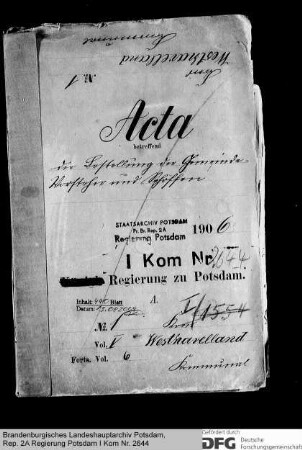 Communal
Westhavelland
Nr. 1
Acta
betreffend
die Bestellung der Gemeinde-
Vorsteher und Schöffen
STAATSARCHIV POTSDAM
Pr. Br. Rep. 2A
Regierung Potsdam
1906
I Kom Nr. 2644
Regierung zu Potsdam.
Inhalt: Blatt
Datum:
№ 1
Vol. V
Westhavelland
Forts. Vol. 6
Communal
Brandenburgisches Landeshauptarchiv Potsdam,
Rep. 2A Regierung Potsdam I Kom Nr. 2644
Gefördert durch
DFG Deutsche
Forschungsgemeinschaft